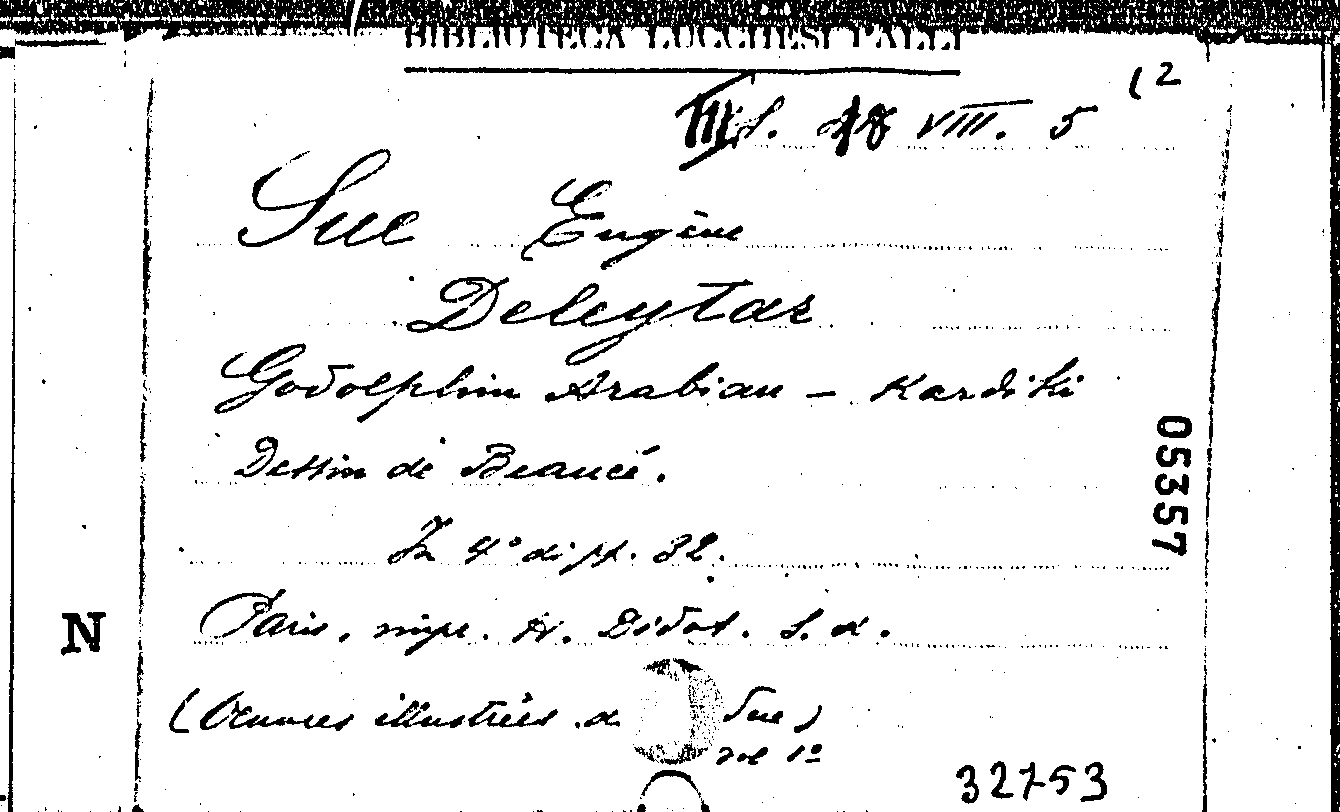 BIBLIOTECA LUCCHESI PALLI
(2
VIII. 5
Sue Eugène
Deleytar
Godolphin Arabian – Kardiki
Dessin de Beaucé.
In 4° di pp. 32.
Paris, impr. H. Didot. S. d.
(Oeuvres illustrées d Sue)
vol 1º
32753
05357
N